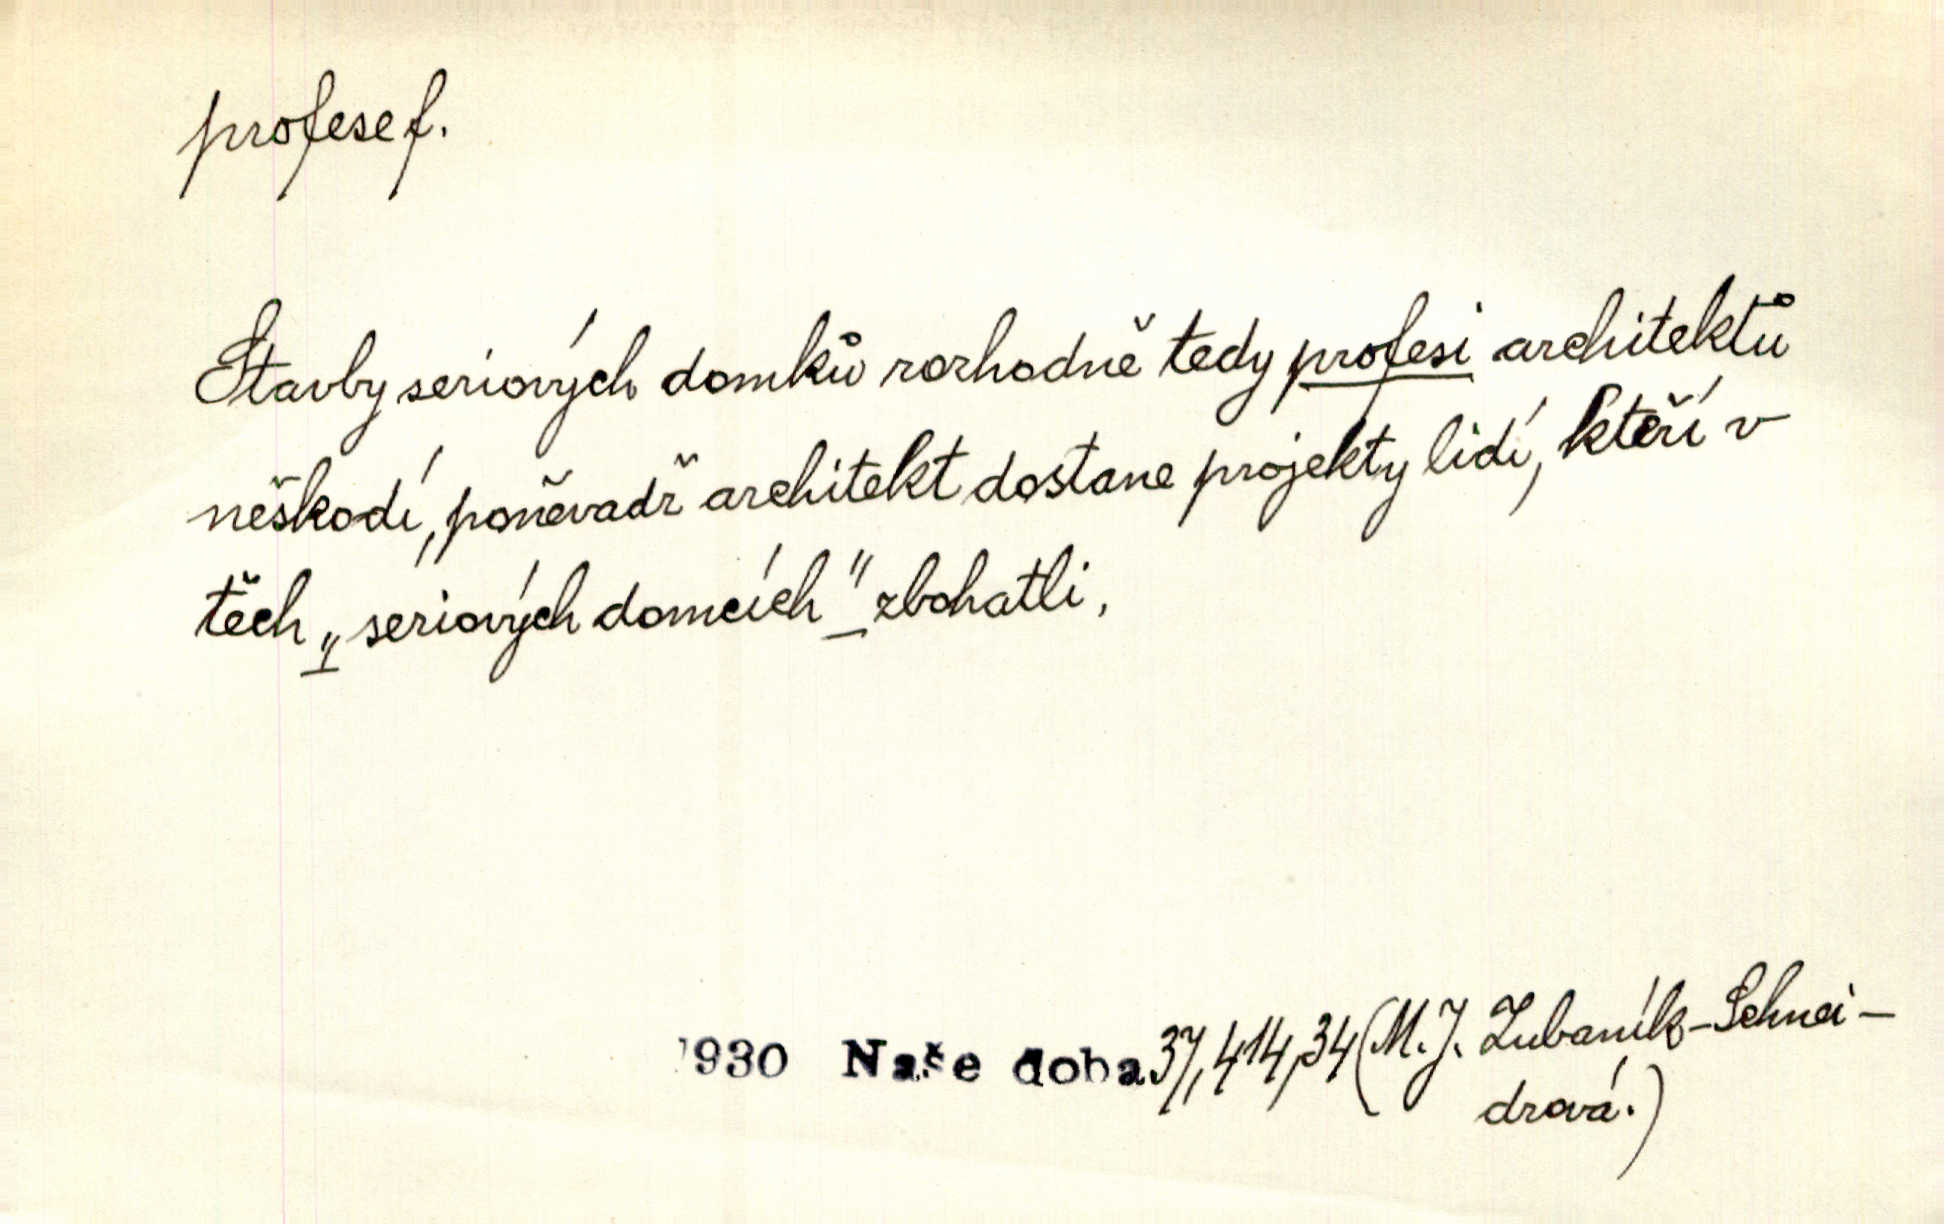 profese f.
Stavby seriových domků rozhodně tedy profesi architektů
neškodí, poněvadž architekt dostane projekty lidí, kteří v
těch „seriových domcích" zbohatli,
1930 Naše doba 37, 414, 34 (M. J. Zubaník-Schnei-
drová.)